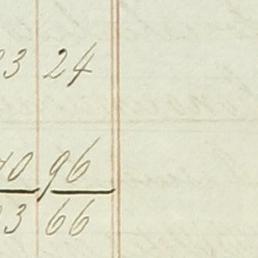 3 24
0 96
3 66